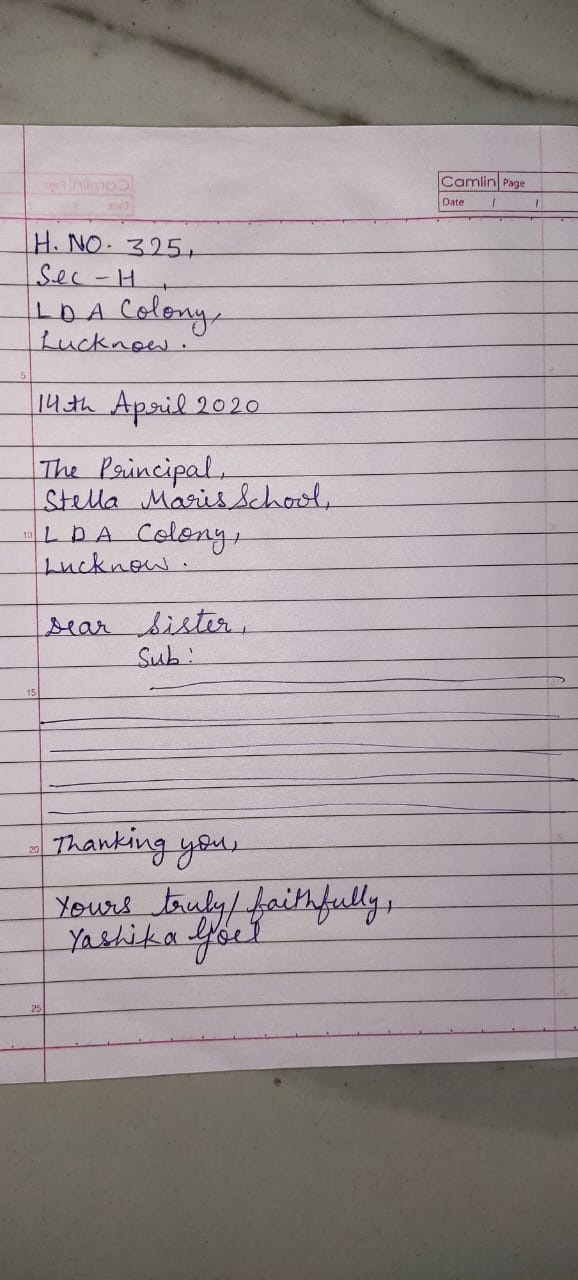 Camlin Page
Date / /
H. NO. 325,
Sec - H ,
L D A Colony,
Lucknow.
5
14th April 2020
The Principal,
Stella Maris School,
10 L D A Colony,
Lucknow.
Dear Sister,
Sub:
15
20 Thanking you,
Yours truly/ faithfully,
Yashika Goel
25